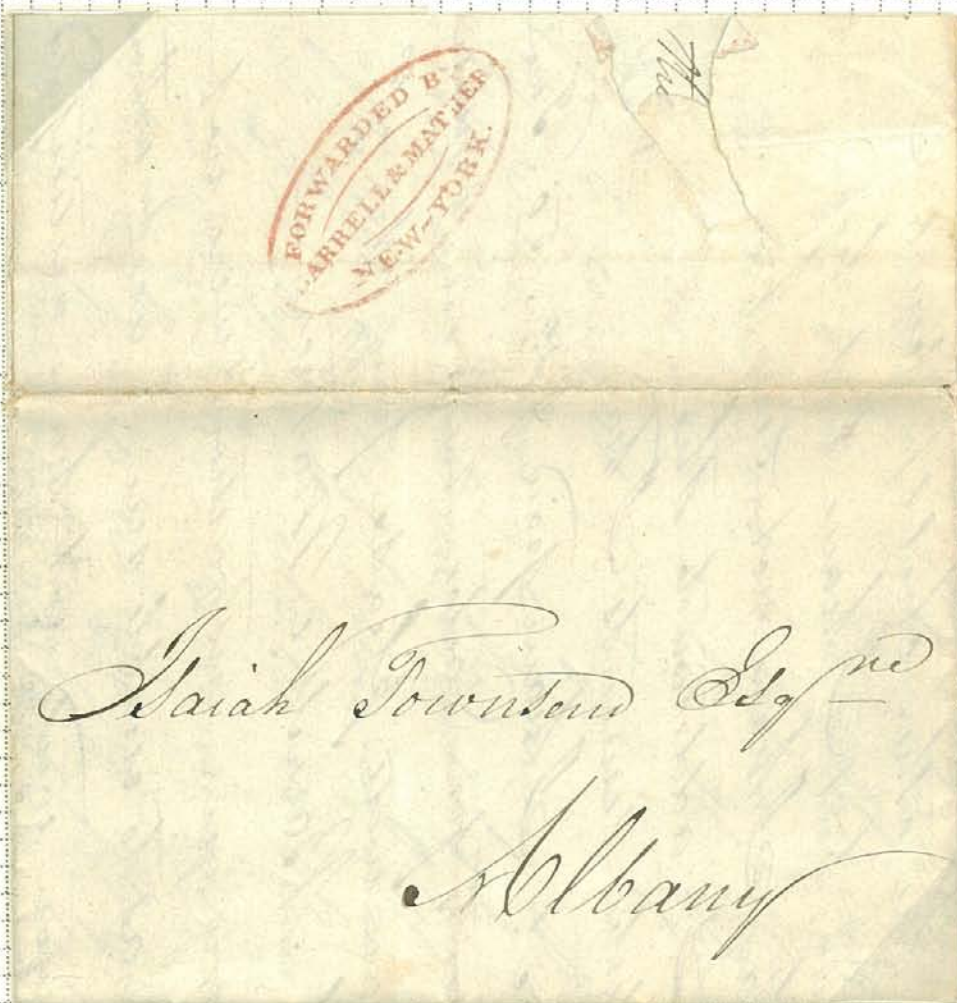 FORWARDED B
ARRELL & MATHER
NEW-YORK.
Isaiah Townsend Esqre
Albany